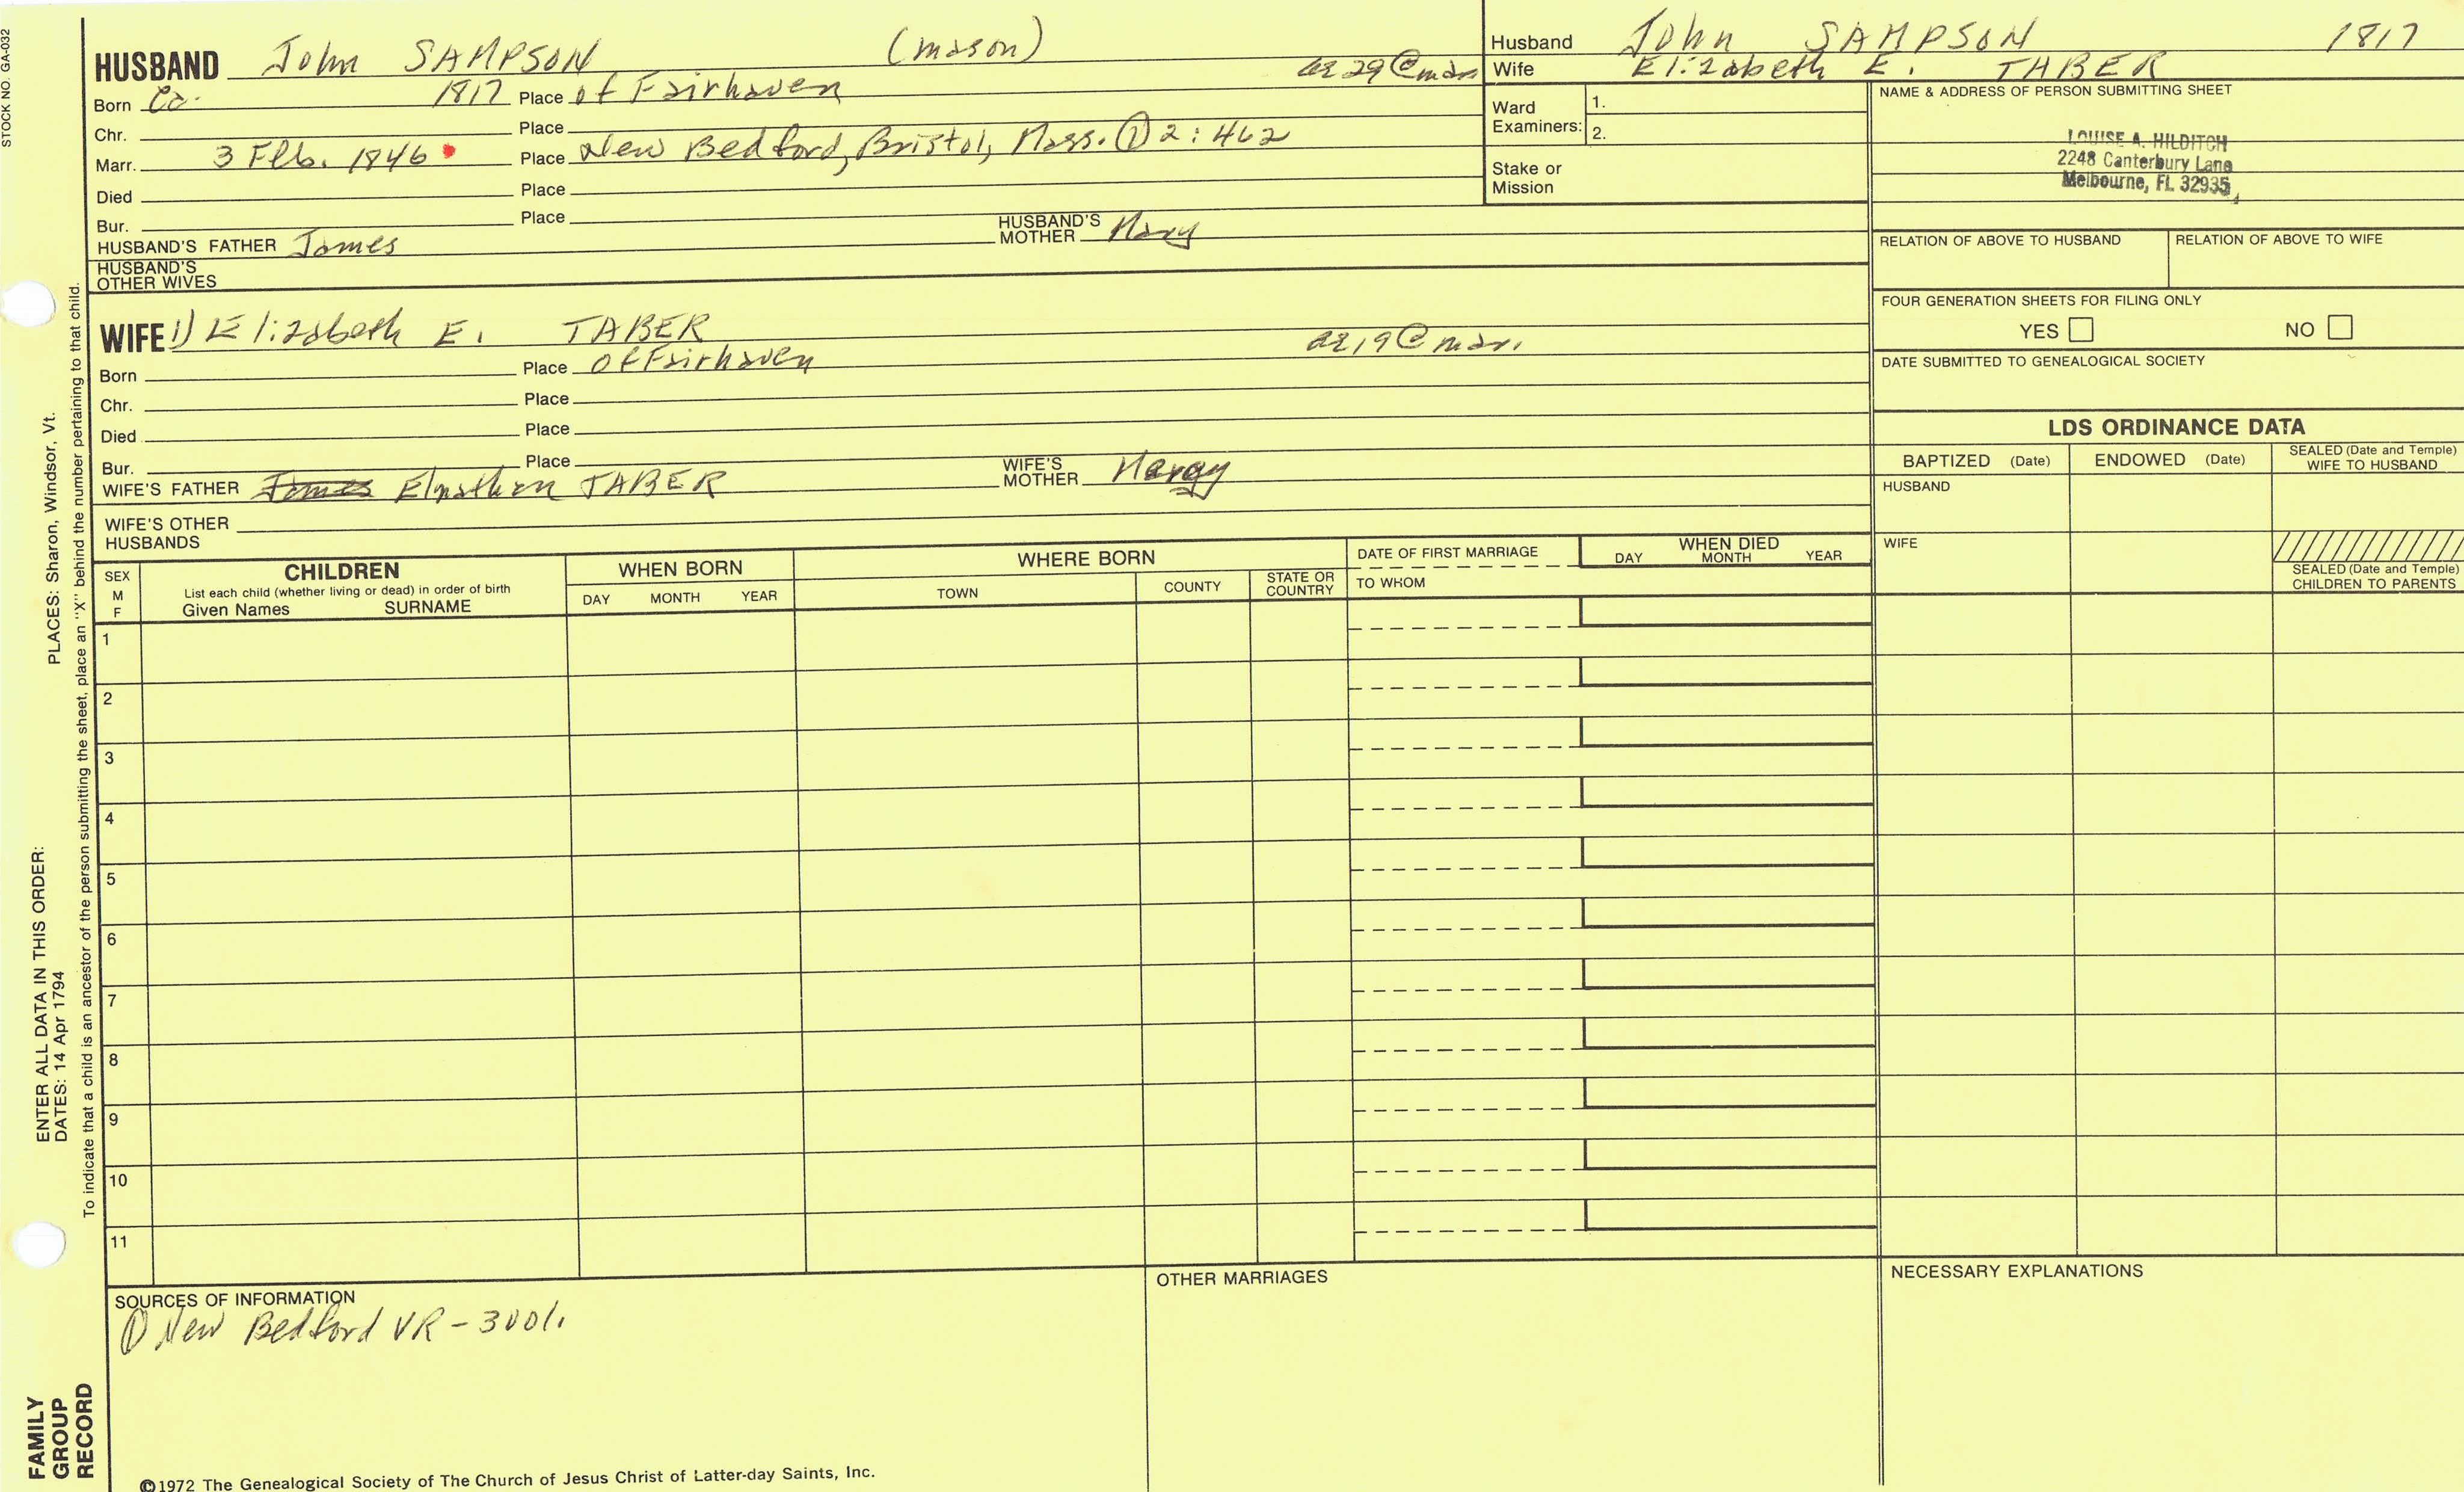 STOCK NO. GA-032
HUSBAND John SAMPSON (mason) ae 29 @ mar
Born Ca. 1817 Place of Fairhaven
Chr. Place
Marr. 3 Feb. 1846 Place New Bedford, Bristol, Mass. ① 2:462
Died Place
Bur. Place
HUSBAND'S FATHER James HUSBAND'S MOTHER Mary
HUSBAND'S
OTHER WIVES
WIFE 1) Elizabeth E. TABER ae 19 @ mar.
Born Place of Fairhaven
Chr. Place
Died Place
Bur. Place
WIFE'S FATHER James Elnathan TABER WIFE'S MOTHER
WIFE'S OTHER
HUSBANDS
Husband John SAMPSON 1817
Wife Elizabeth E. TABER
Ward
Examiners: 1.
2.
Stake or
Mission
NAME & ADDRESS OF PERSON SUBMITTING SHEET
LOUISE A. HILDITCH
2248 Canterbury Lane
Melbourne, FL 32935
RELATION OF ABOVE TO HUSBAND RELATION OF ABOVE TO WIFE
FOUR GENERATION SHEETS FOR FILING ONLY
YES NO
DATE SUBMITTED TO GENEALOGICAL SOCIETY
LDS ORDINANCE DATA
BAPTIZED (Date) ENDOWED (Date) SEALED (Date and Temple)
WIFE TO HUSBAND
HUSBAND
WIFE
SEALED (Date and Temple)
CHILDREN TO PARENTS
SEX
M
F
CHILDREN
List each child (whether living or dead) in order of birth
Given Names SURNAME
WHEN BORN
DAY MONTH YEAR
WHERE BORN
TOWN COUNTY STATE OR
COUNTRY
DATE OF FIRST MARRIAGE
TO WHOM
WHEN DIED
DAY MONTH YEAR
1
2
3
4
5
6
7
8
9
10
11
SOURCES OF INFORMATION
① New Bedford VR - 3001.
OTHER MARRIAGES
NECESSARY EXPLANATIONS
©1972 The Genealogical Society of The Church of Jesus Christ of Latter-day Saints, Inc.
FAMILY
GROUP
RECORD
ENTER ALL DATA IN THIS ORDER:
DATES: 14 Apr 1794 PLACES: Sharon, Windsor, Vt.
To indicate that a child is an ancestor of the person submitting the sheet, place an "X" behind the number pertaining to that child.